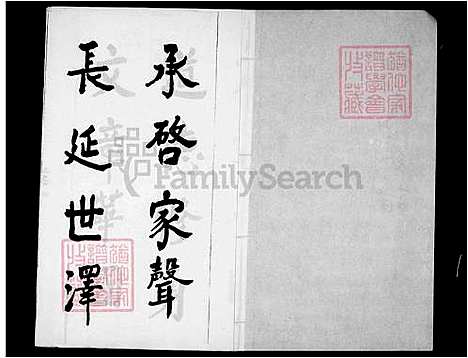 承啓家聲
長延世澤
FamilySearch